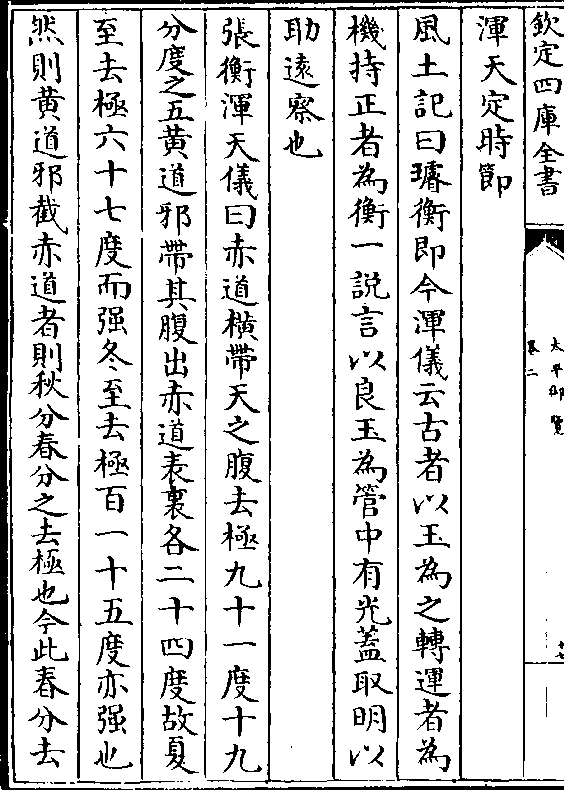 欽定四庫全書
太平御覽
卷二
渾天定時節
風土記曰璿衡即今渾儀云古者以玉為之轉運者為
機持正者為衡一説言以良玉為管中有光蓋取明以
助遠察也
張衡渾天儀曰赤道橫帶天之腹去極九十一度十九
分度之五黄道邪帶其腹出赤道表裏各二十四度故夏
至去極六十七度而强冬至去極百一十五度亦强也
然則黄道邪截赤道者則秋分春分之去極也今此春分去